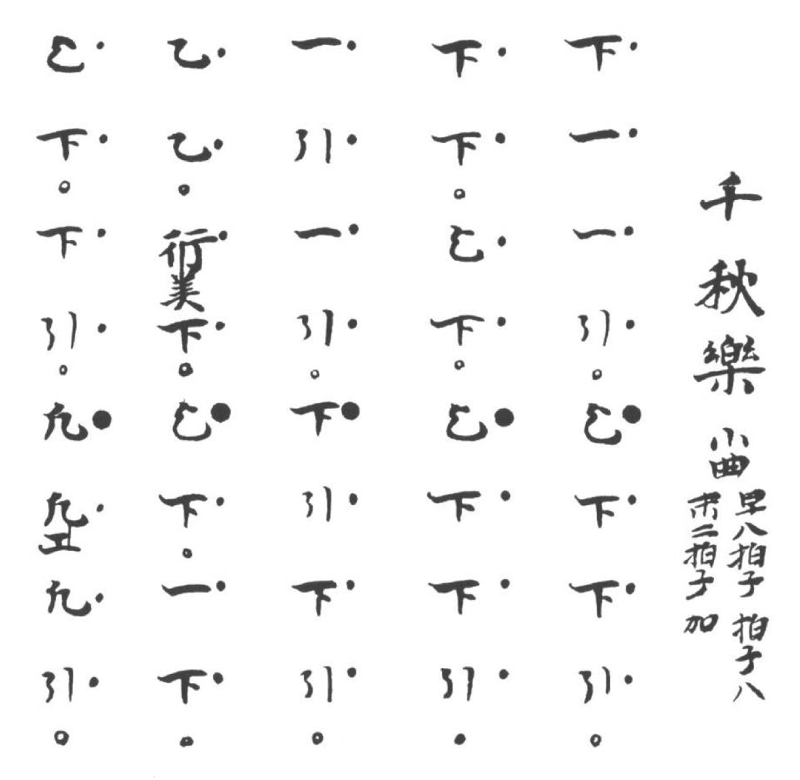 千秋樂 小曲
早八拍子 拍子八
末二拍子 加
下一一引乞下下引
下下乞下乞下下引
一引一引下引下引
乙乙行美下乞下一下
乞下下引凢凢工凢引